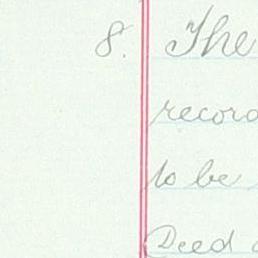 8. The
record
to be
Deed